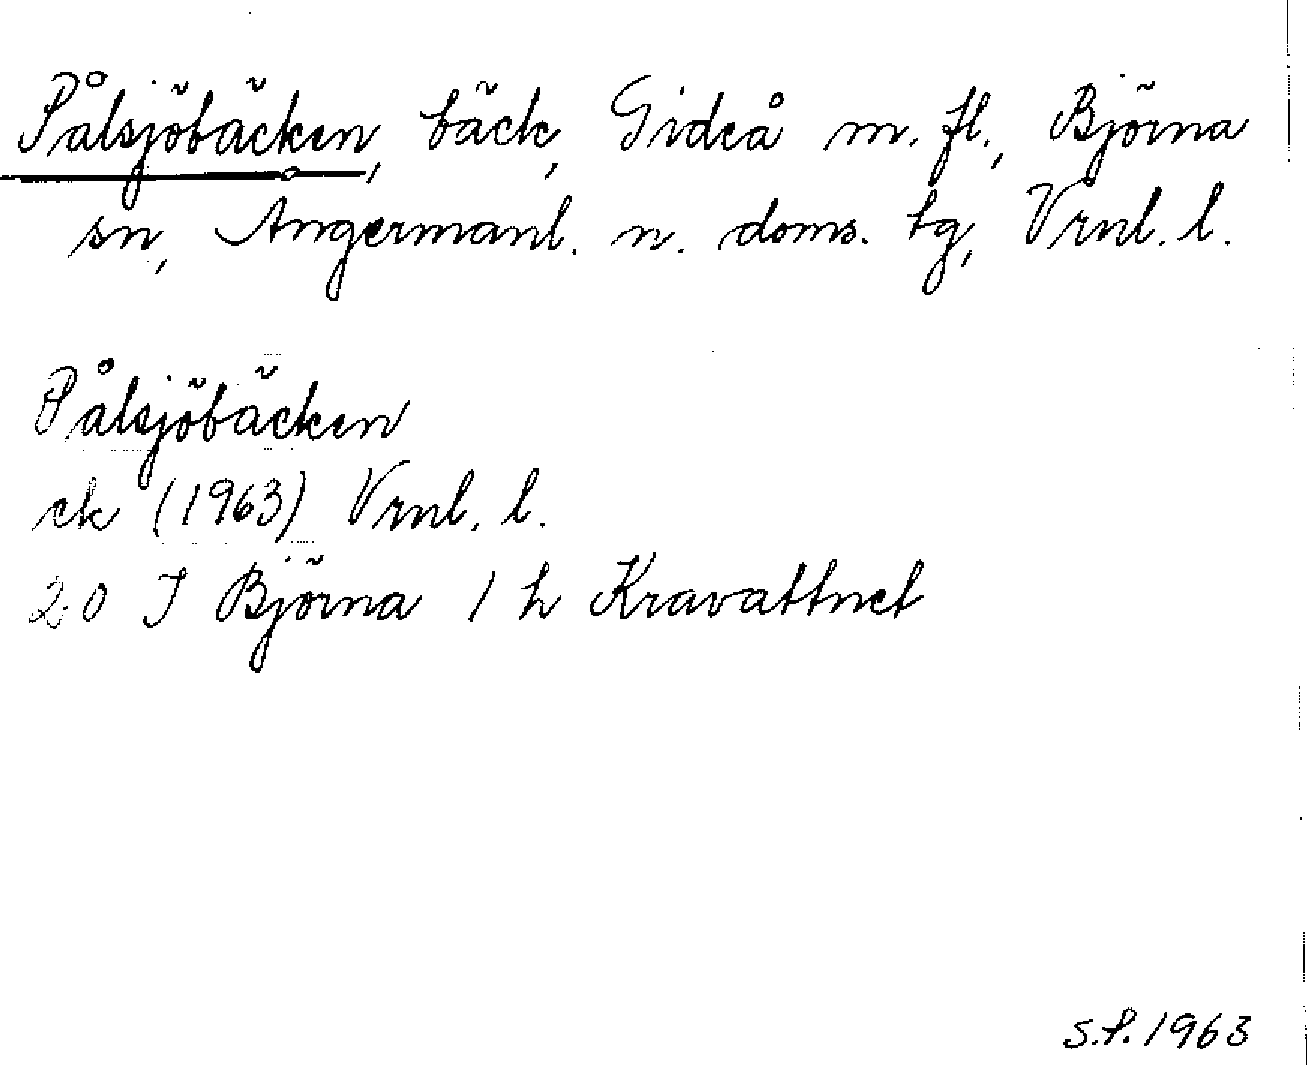 Pålsjöbäcken, bäck, Gideå m. fl., Björna
sn, Ångermanl. n. doms. tg, Vrnl. l.
Pålsjöbäcken
ek (1963) Vrnl. l.
20 I Björna 1 h Kravattnet
S.P. 1963